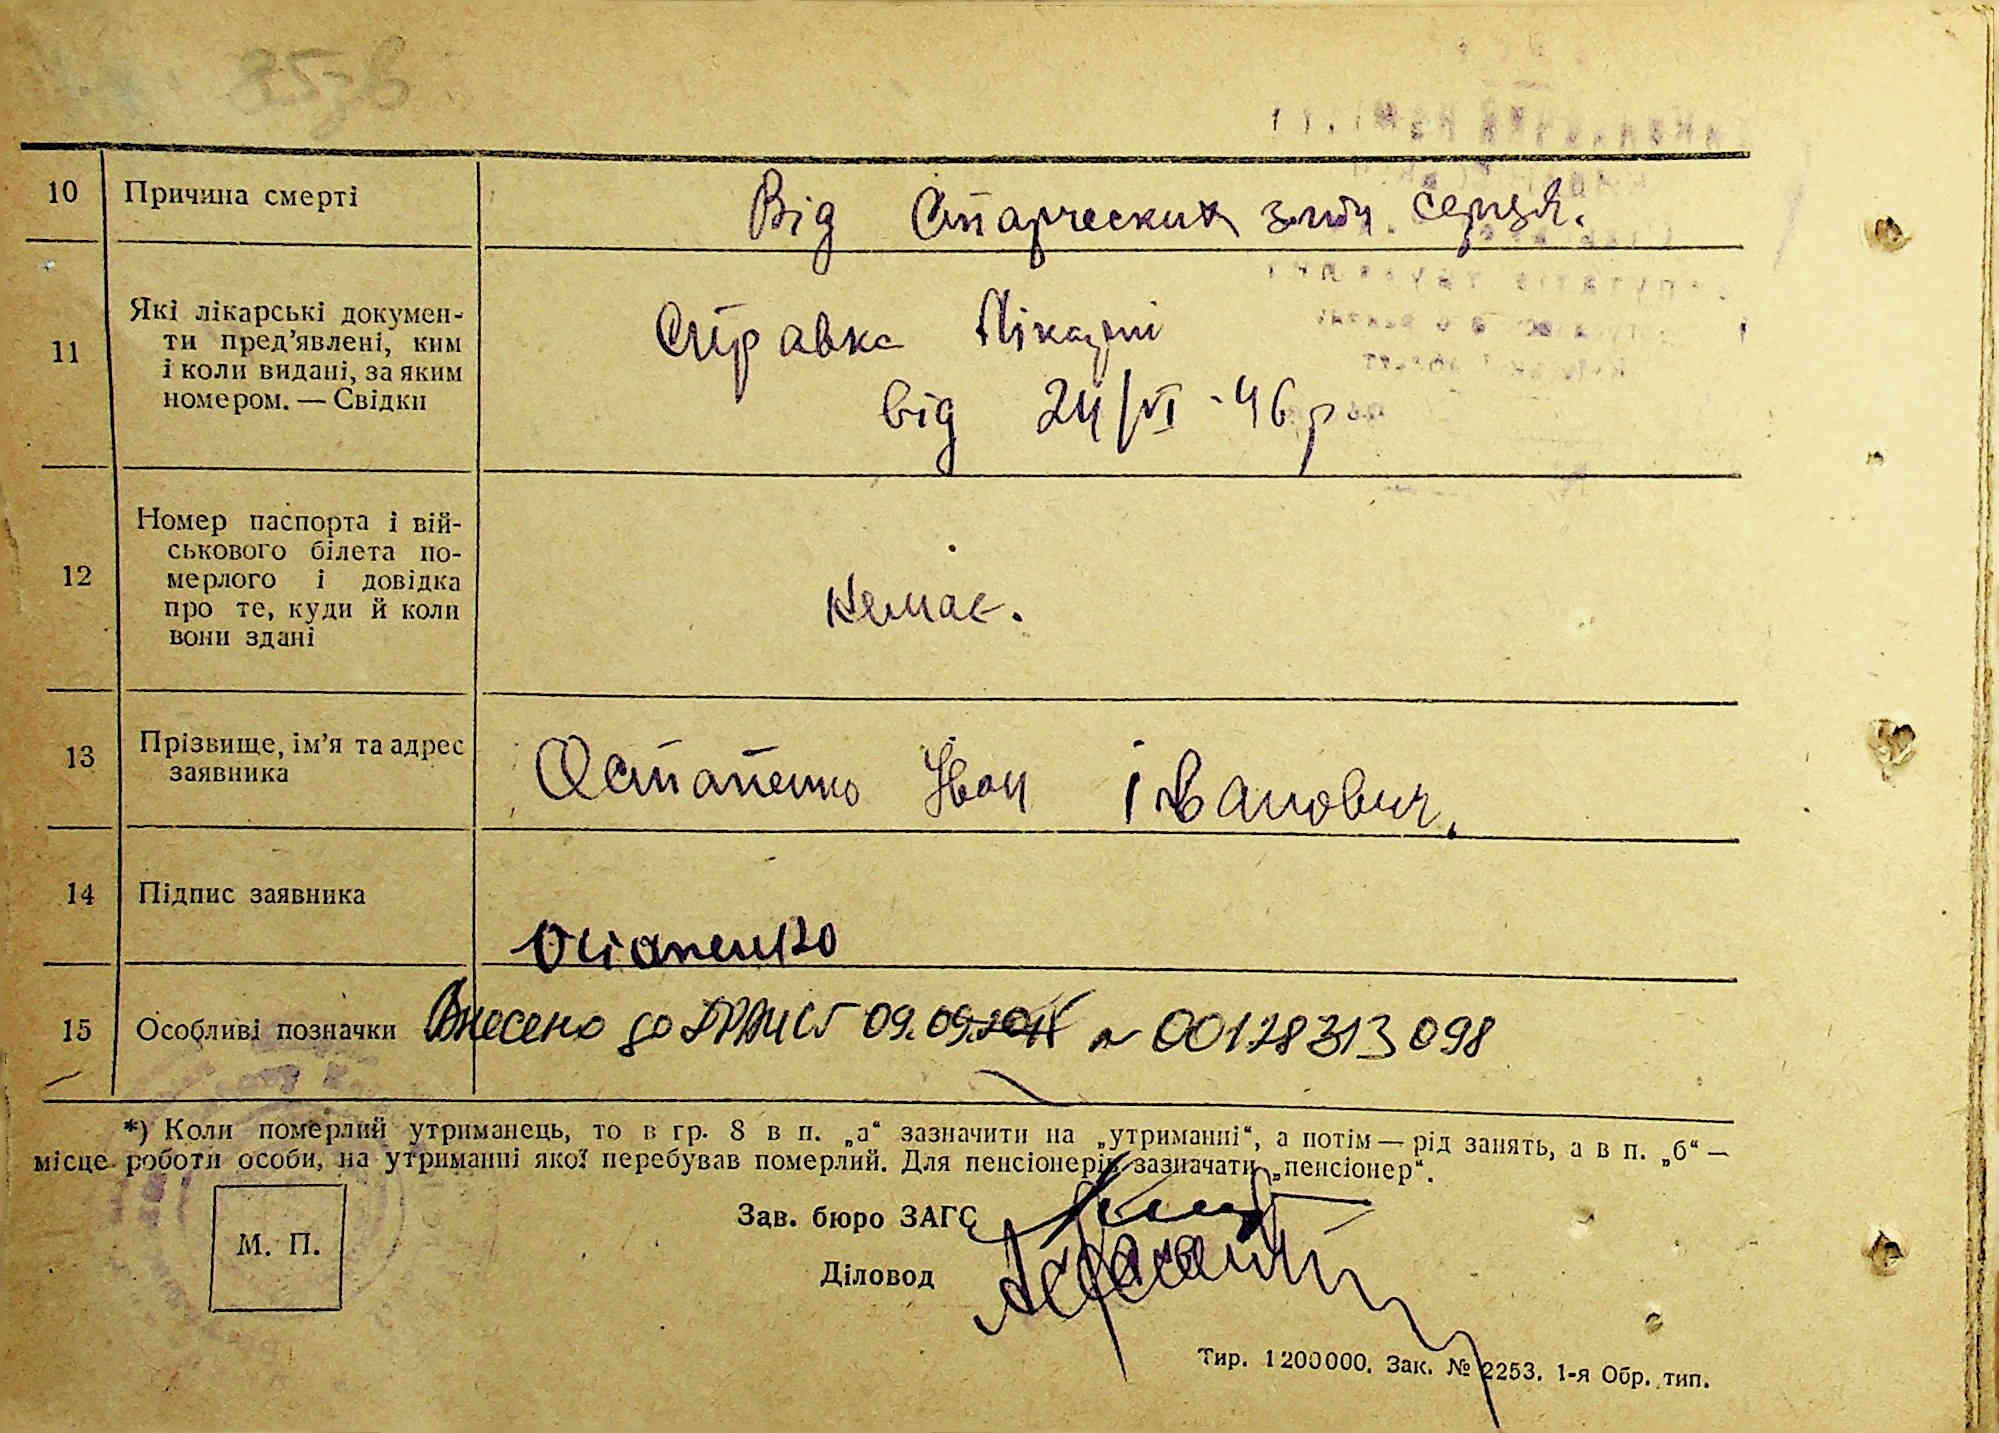 10 Причина смерті Від Старческих змін. серця.
11 Які лікарські докумен-
ти пред’явлені, ким
і коли видані, за яким
номером. — Свідки
Справка Лікарні
від 24/VI - 46 р
12 Номер паспорта і вій-
ськового білета по-
мерлого і довідка
про те, куди й коли
вони здані
немає.
13 Прізвище, ім’я та адрес
заявника
Остапенко Іван Іванович.
14 Підпис заявника
Остапенко
15 Особливі позначки Внесено до ДРАЦС 09.09. № 00128313098
*) Коли померлий утриманець, то в гр. 8 в п. „а“ зазначити на „утриманні“, а потім — рід занять, а в п. „б“ —
місце роботи особи, на утриманні якої перебував померлий. Для пенсіонерів зазначати „пенсіонер“.
М. П.
Зав. бюро ЗАГС
Діловод
Тир. 1200000. Зак. № 2253. 1-я Обр. тип.